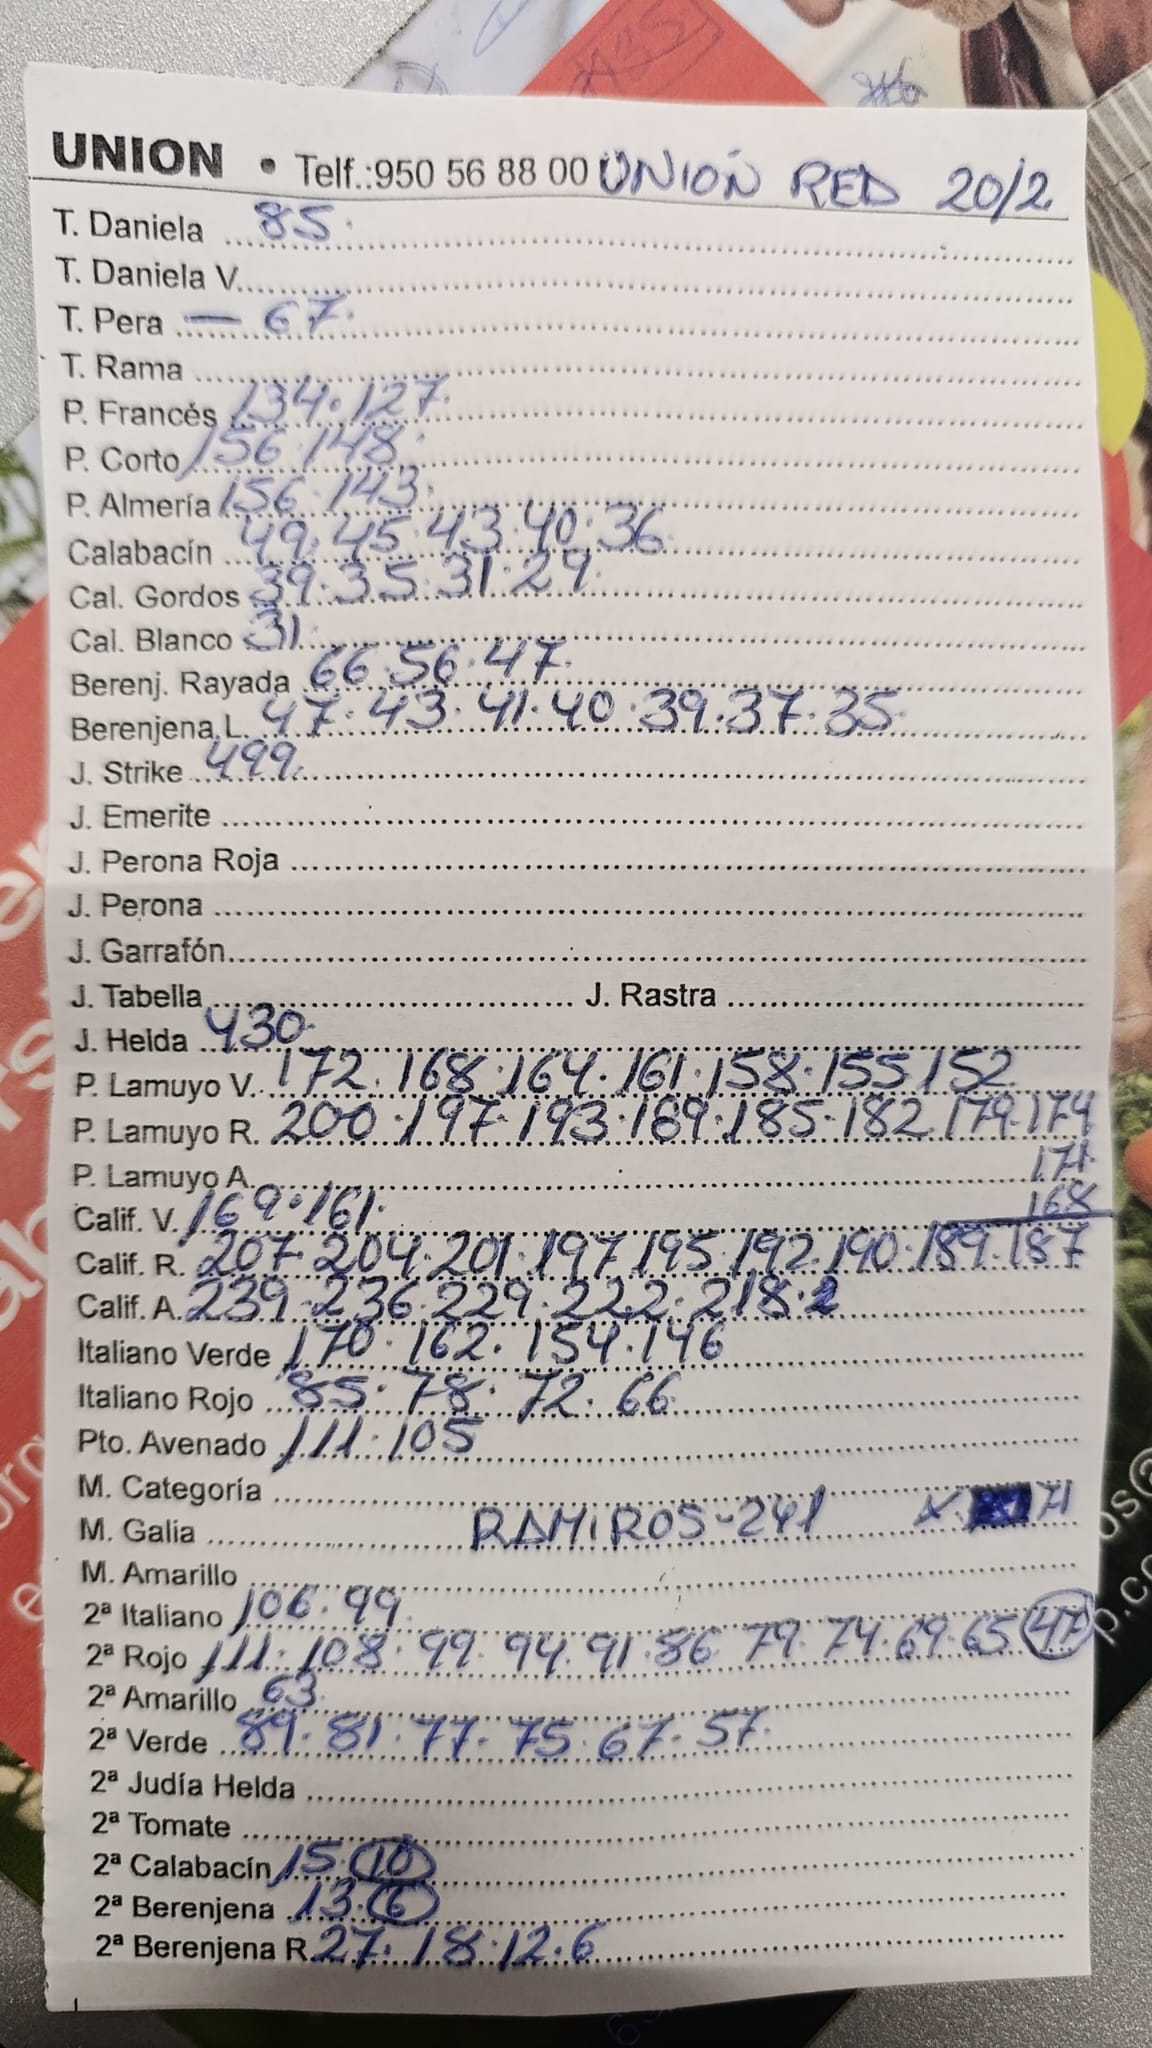 UNION • Telf.:950 56 88 00 UNIÓN RED 20/2
T. Daniela 85.
T. Daniela V.
T. Pera — 67.
T. Rama
P. Francés 134.127.
P. Corto 156.148.
P. Almería 156.143.
Calabacín 49.45.43.40.36.
Cal. Gordos 39.35.31.29.
Cal. Blanco 31.
Berenj. Rayada 66.56.47.
Berenjena L. 47.43.41.40.39.37.35.
J. Strike 499.
J. Emerite
J. Perona Roja
J. Perona
J. Garrafón
J. Tabella J. Rastra
J. Helda 430.
P. Lamuyo V. 172.168.164.161.158.155.152.
P. Lamuyo R. 200.197.193.189.185.182.179.174
P. Lamuyo A. 171.
168
Calif. V. 169.161.
Calif. R. 207.204.201.197.195.192.190.189.187
Calif. A. 239.236.229.222.218.
Italiano Verde 170.162.154.146
Italiano Rojo 85.78.72.66.
Pto. Avenado 111.105
M. Categoría
M. Galia RAMIROS-241 71
M. Amarillo
2ª Italiano 106.99.
2ª Rojo 111.108.99.94.91.86.79.74.69.65 47
2ª Amarillo 63.
2ª Verde 89.81.77.75.67.57.
2ª Judía Helda
2ª Tomate
2ª Calabacín 15.10
2ª Berenjena 13.6
2ª Berenjena R. 27.18.12.6